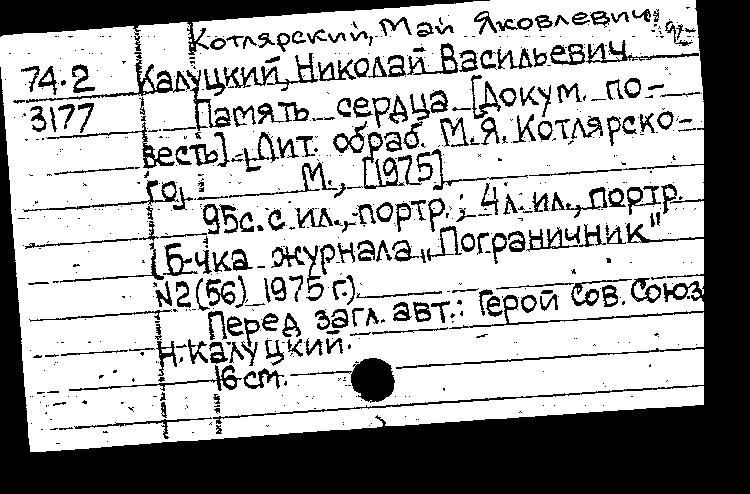 Котлярский, Май Яковлевич
74.2 Калуцкий, Николай Васильевич
3177 Память сердца [Докум. по-
весть]. [Лит. обраб. М.Я. Котлярско-
го]. М., [1975].
95с. с ил., портр.; 4л. ил., портр.
(Б-чка журнала „Пограничник"
N2(56) 1975 г.)
Перед загл. авт.: Герой Сов. Союза
Н. Калуцкий.
16 cm.